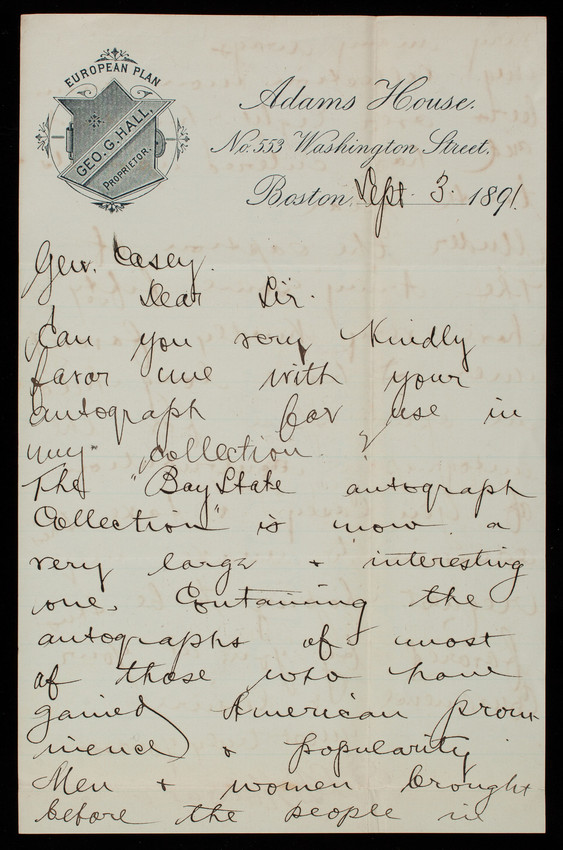 EUROPEAN PLAN
GEO. G. HALL,
PROPRIETOR.
Adams House.
No. 553 Washington Street.
Boston, Sept 3. 1891.
Gen. Casey.
Dear Sir.
Can you very Kindly
favor me with your
autograph for use in
my collection.
The "Bay State autograph
Collection" is now a
very large + interesting
one. Containing the
autographs of most
of those who have
gained American prom
inence & popularity
Men & women brought
before the people in